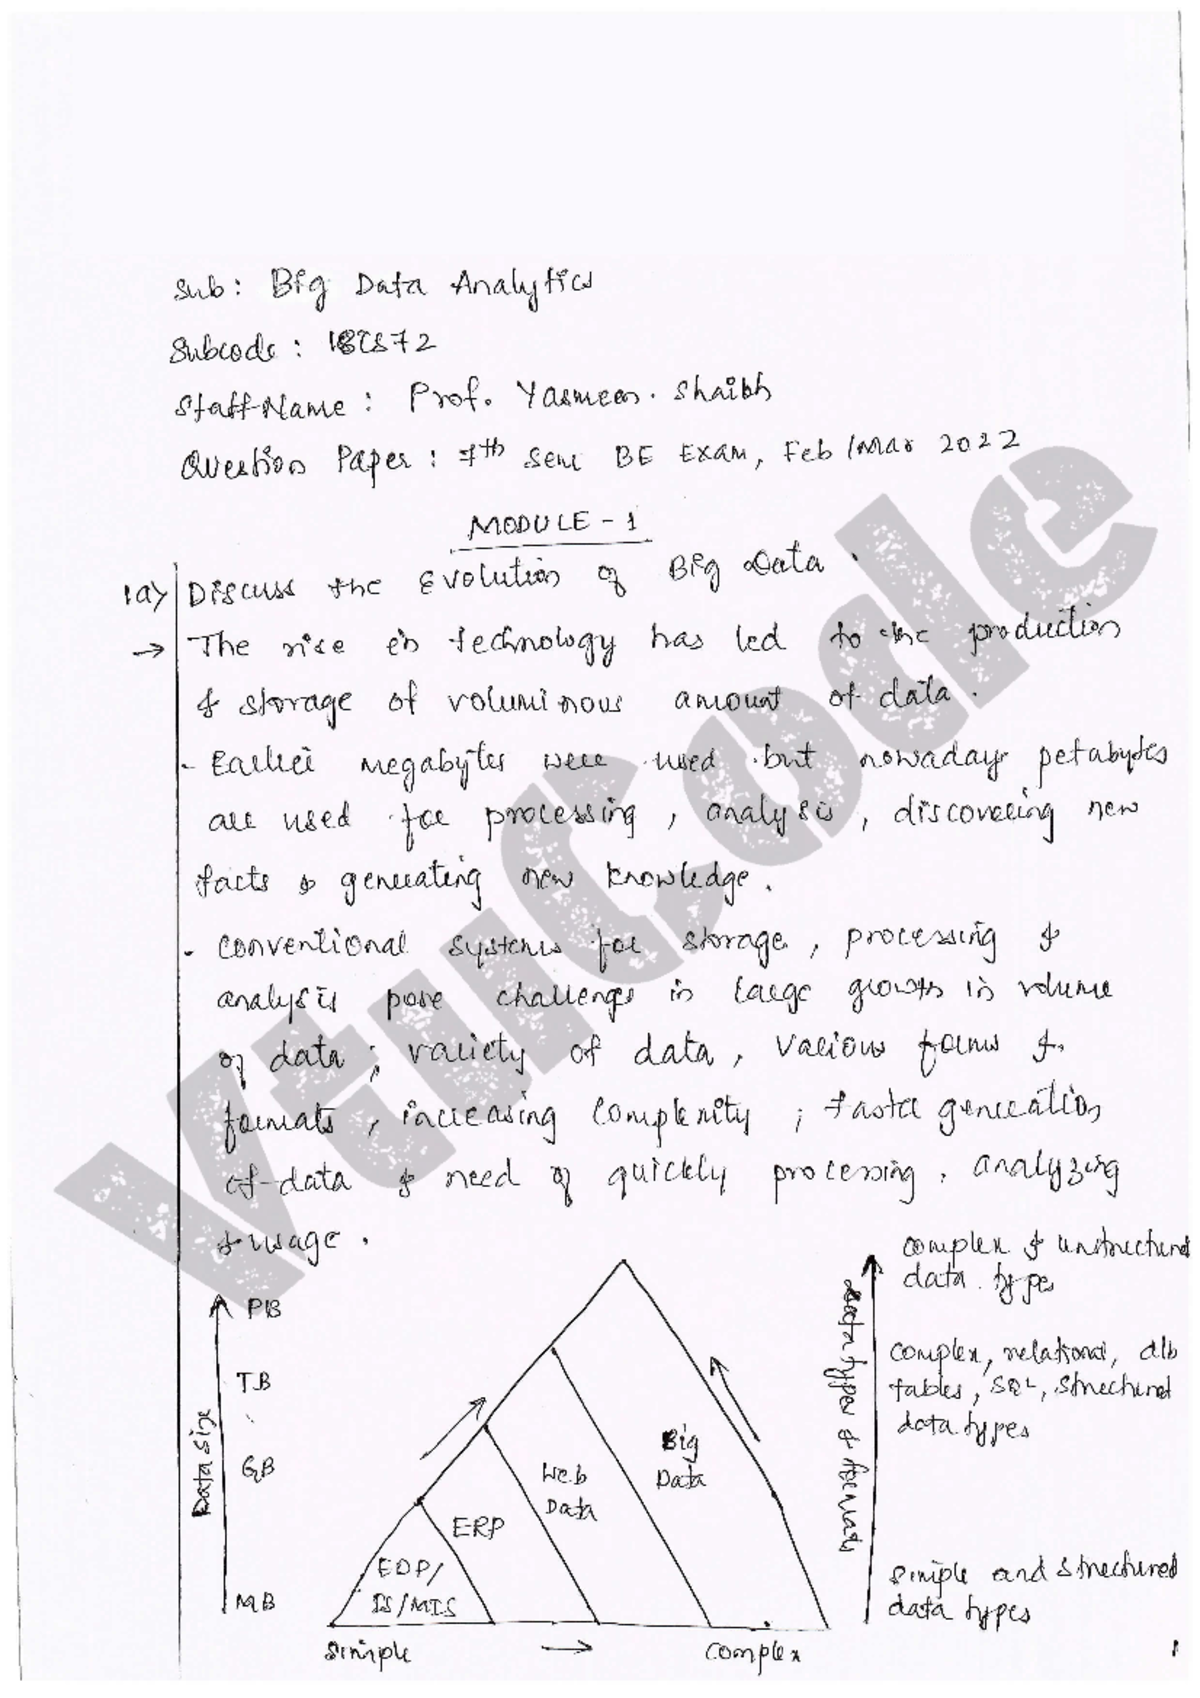 Sub: Big Data Analytics
Subcode: 18CS72
Staff Name: Prof. Yasmeen. Shaikh
Question Paper: 7th Sem BE Exam, Feb/Mar 2022
MODULE - 1
1a) Discuss the Evolution of Big Data.
→ The rise in technology has led to the production
& storage of voluminous amount of data.
- Earlier megabytes were used but nowadays petabytes
are used for processing, analysis, discovering new
facts & generating new knowledge.
- Conventional systems for storage, processing &
analysis pose challenges in large growth in volume
of data; variety of data, various forms &
formats, increasing complexity; faster generation
of data & need of quickly processing, analyzing
& usage.
Data Size
PB
TB
GB
MB
EDP/
IS/MIS
ERP
Web
Data
Big
Data
Simple → Complex
Data types & formats
Complex & unstructured
data types
Complex, relational, db
tables, SQL, structured
data types
Simple and structured
data types
1
VtuCode